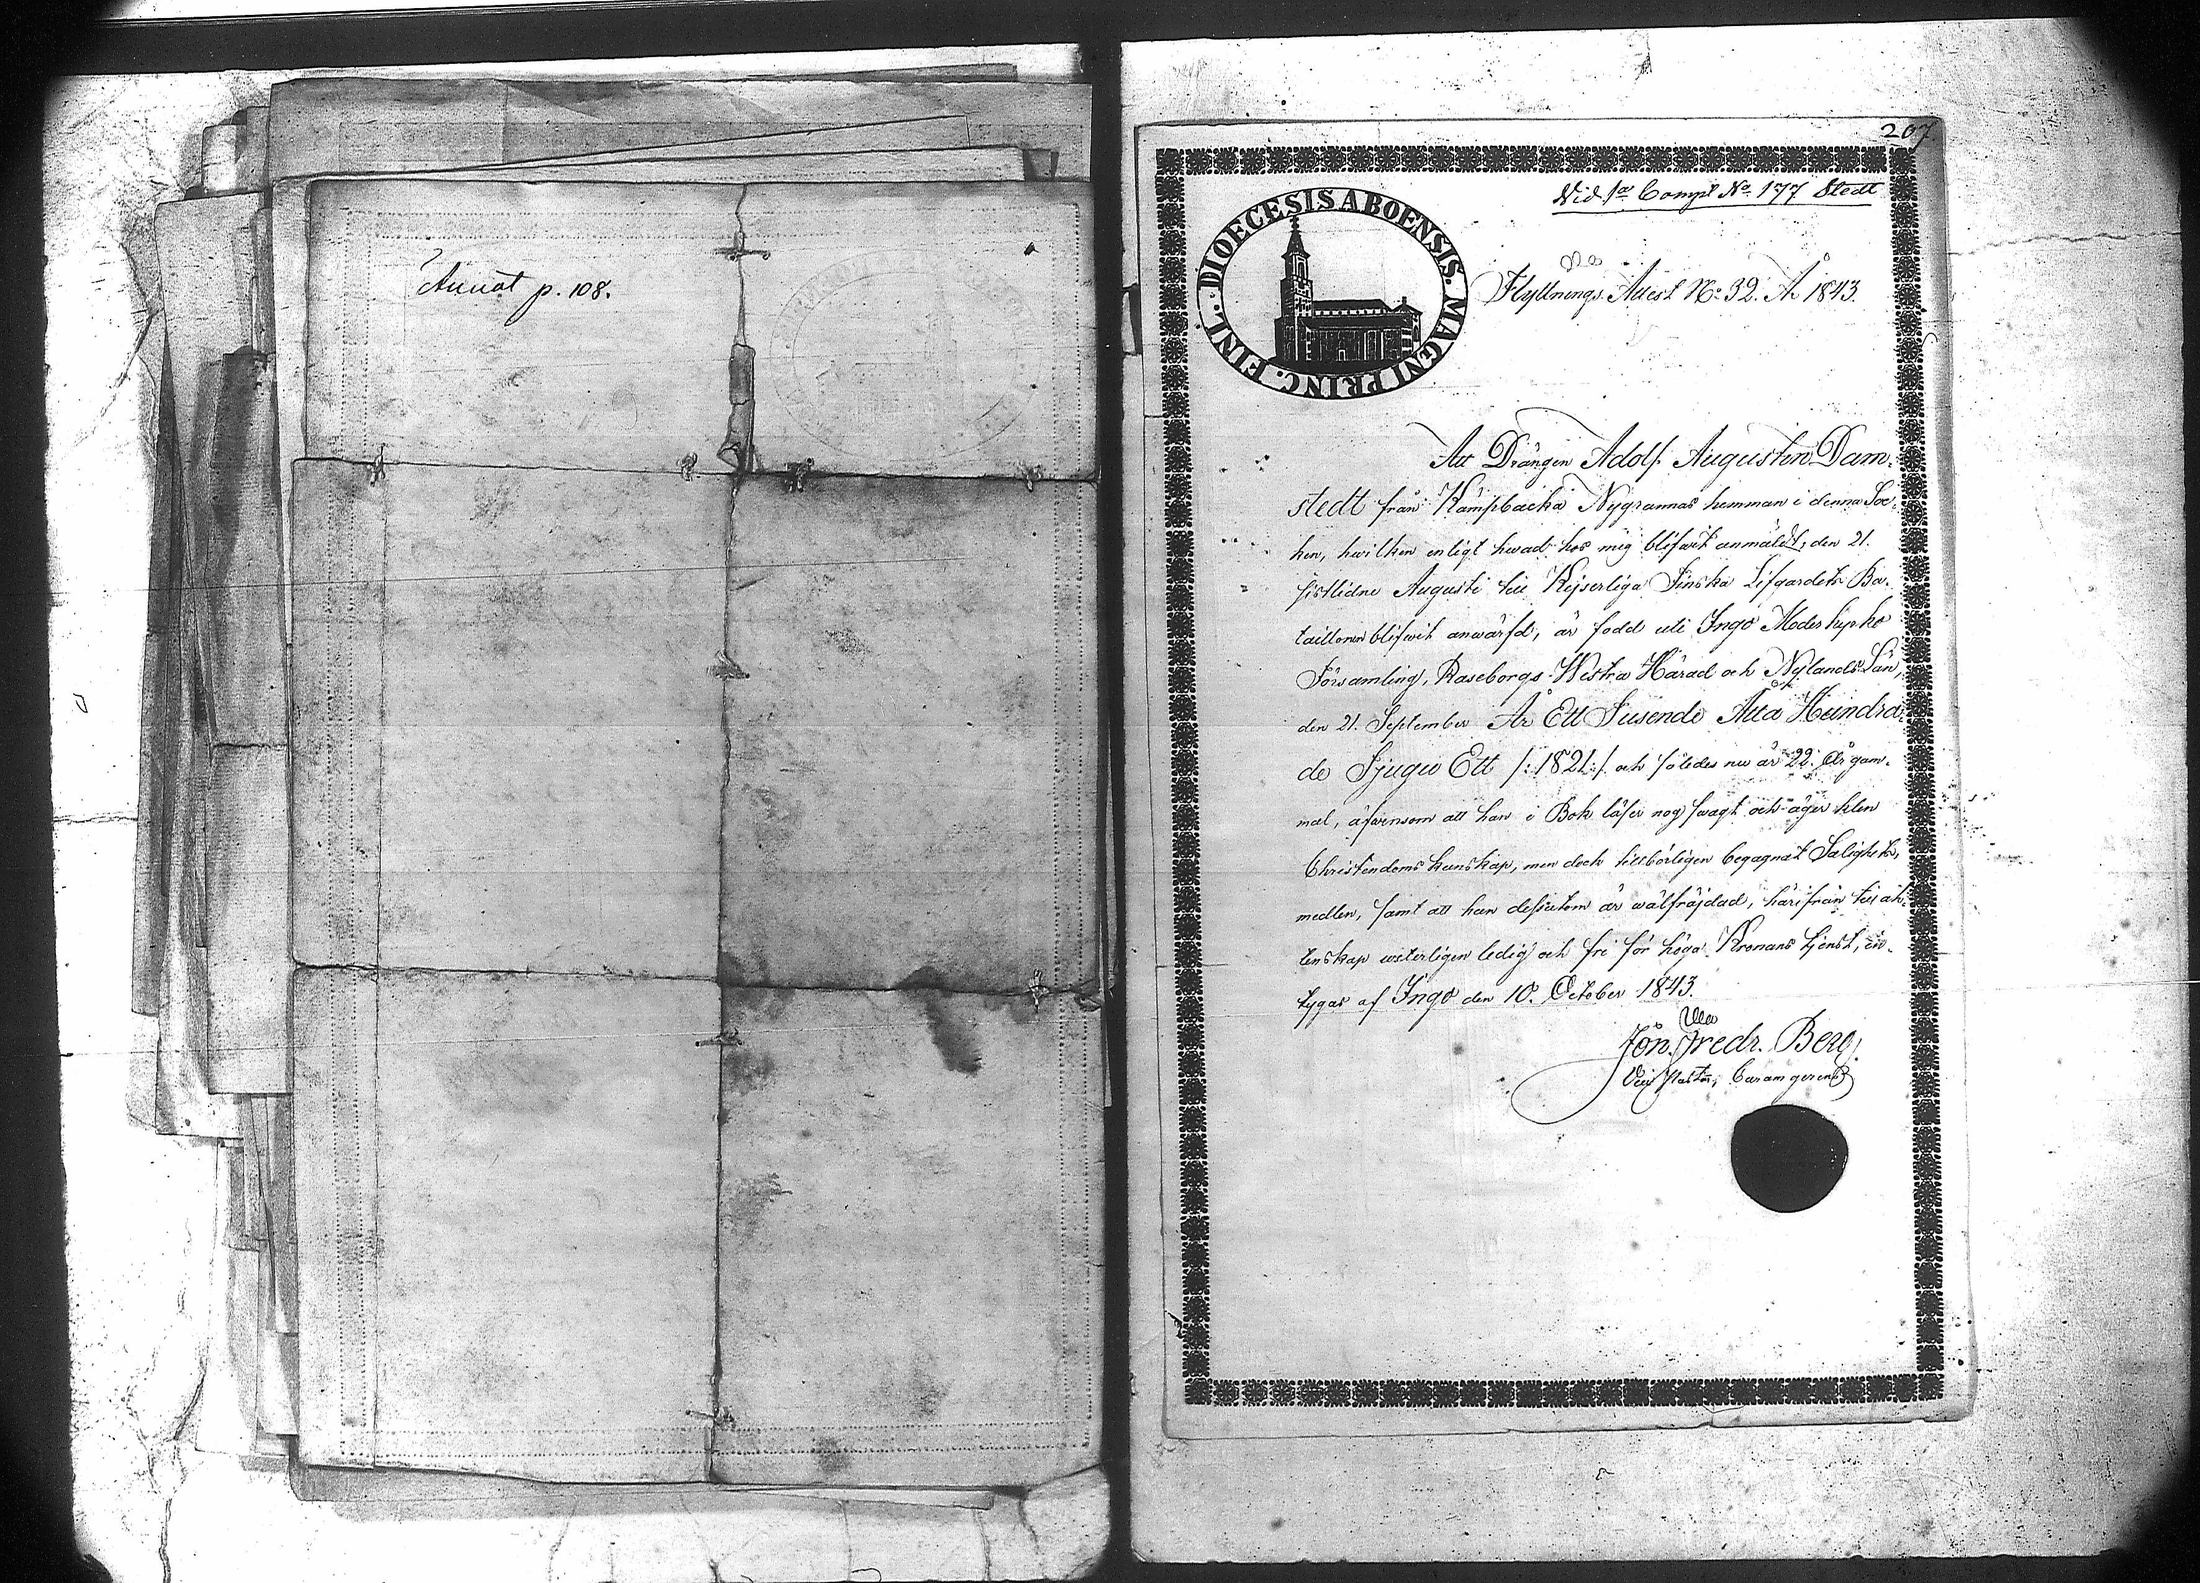 Annot p. 108.
207
Vid 1a Comp. No 177 Stedt
DIOECESIS ABOENSIS. MAGNI PRINC. FINL.
Flyttnings Attest No 32. År 1843.
Att Drängen Adolf Augustin Dam-
stedt från Kämpbacka Nygrannas hemman i denna Soc-
ken, hvilken enligt hwad hos mig blifwit anmäldt, den 21.
sistlidne Augusti till Kejserliga Finska Lifgardets Ba-
taillonen blifwit anwärfd, är född uti Ingo Moderkyrko
Församling, Raseborgs Westra Härad och Nylands Län,
den 21. September År Ett Tusende Åtta Hundra-
de Tjugu Ett /:1821:/ och således nu är 22 År gam-
mal, äfwensom att han i Bok läser nog swagt och äger klen
Christendoms kunskap, men dock tillbörligen begagnat Salighets,
medlen, samt att han dessutom är wälfräjdad, härifrån till äk-
tenskap weterligen ledig och fri för höga Kronans tjenst, in-
tygas af Ingo den 10. October 1843.
Jon. Fredr. Berg.
Vice Pastor, Curam gerens